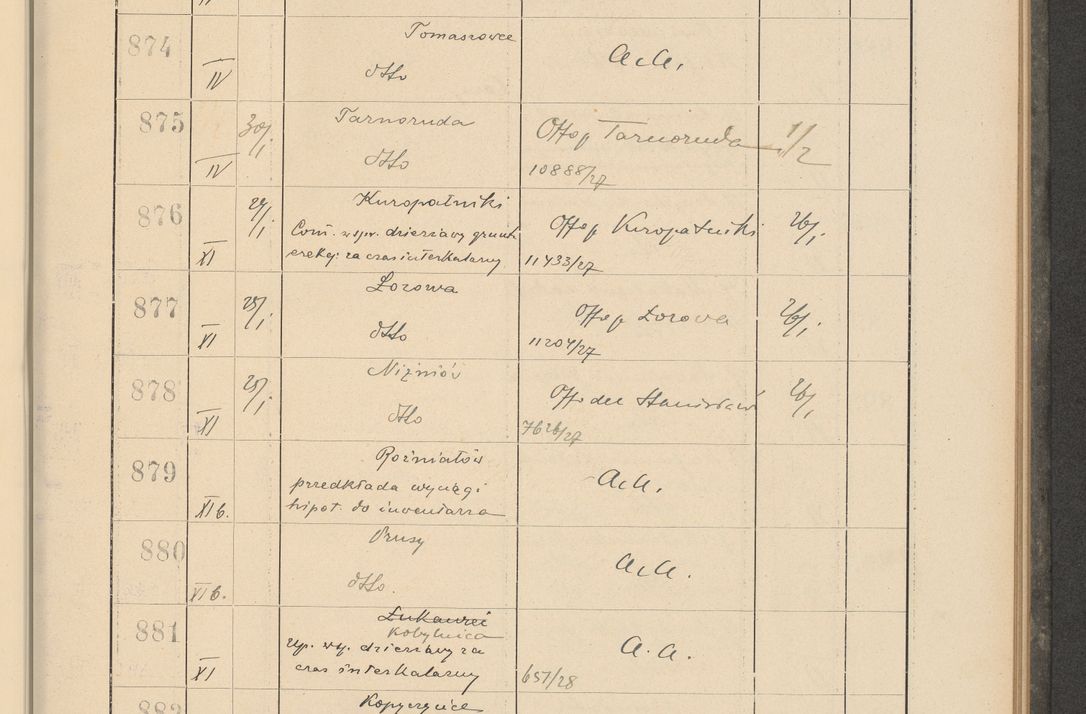 874 IV Tomaszowce
dtto
a.a.
875 IV 30/1 Tarnoruda
dtto
Offo p Tarnoruda 1/2
10888/27
876 XI Kuropatniki
Com. w spr. dzierżawy grunt.
erekcj: za czas interkalarny
Offo p Kuropatniki 26/1.
11433/27
877 XI 25/1 Łozowa
dtto
Offo p Łozowa 26/1.
11204/27
878 XI 25/1 Niżniów
dtto
Offo dec Stanisławów 26/1
7626/27
879 XI b. Rożniatów
przedkłada wyciągi
hipot. do inwentarza
a.a.
880 VI b. Prusy
dtto.
a.a.
881 XI Łukawiec
Kobylnica
Up. wsp. dzierżawy za
czas interkalarny
a.a.
657/28
882 Kopyczyńce